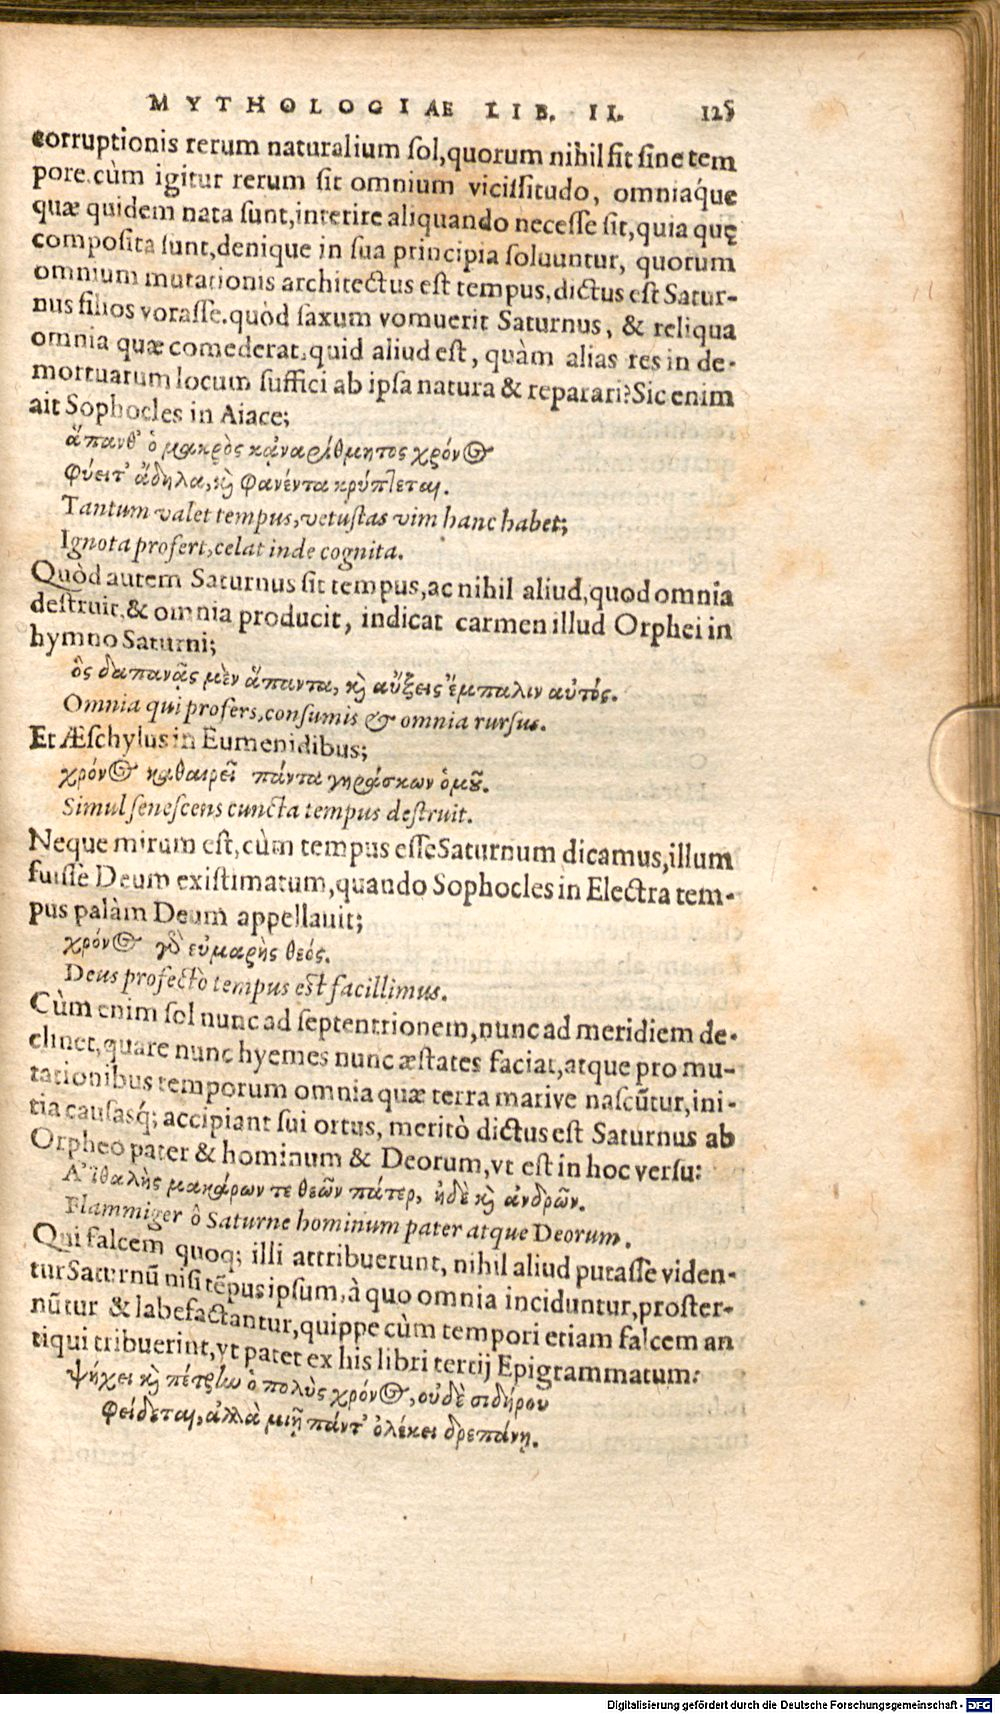 MYTHOLOGIAE LIB. II. 125
corruptionis rerum naturalium sol, quorum nihil fit sine tem
pore. cùm igitur rerum sit omnium vicissitudo, omniaq́ue
quæ quidem nata sunt, interire aliquando necesse sit, quia quę
composita sunt, denique in sua principia soluuntur, quorum
omnium mutationis architectus est tempus, dictus est Satur-
nus filios vorasse. quòd saxum vomuerit Saturnus, & reliqua
omnia quæ comederat, quid aliud est, quàm alias res in de-
mortuarum locum suffici ab ipsa natura & reparari? Sic enim
ait Sophocles in Aiace;
ἅπανθ' ὁ μακρὸς κἀναρίθμητος χρόνος
φύειτ' ἄδηλα, καὶ φανέντα κρύπτεται.
Tantum valet tempus, vetustas vim hanc habet;
Ignota profert, celat inde cognita.
Quòd autem Saturnus sit tempus, ac nihil aliud, quod omnia
destruit, & omnia producit, indicat carmen illud Orphei in
hymno Saturni;
ὃς δαπανᾷς μὲν ἅπαντα, καὶ αὔξεις ἔμπαλιν αὐτός.
Omnia qui profers, consumis & omnia rursus.
Et Æschylus in Eumenidibus;
χρόνος καθαιρεῖ πάντα γηράσκων ὁμοῦ.
Simul senescens cuncta tempus destruit.
Neque mirum est, cùm tempus esse Saturnum dicamus, illum
fuisse Deum existimatum, quando Sophocles in Electra tem-
pus palàm Deum appellauit;
χρόνος γὸ εὐμαρὴς θεός.
Deus profectò tempus est facillimus.
Cùm enim sol nunc ad septentrionem, nunc ad meridiem de-
clinet, quare nunc hyemes nunc æstates faciat, atque pro mu-
tationibus temporum omnia quæ terra marive nascũtur, ini-
tia causasq́; accipiant sui ortus, meritò dictus est Saturnus ab
Orpheo pater & hominum & Deorum, vt est in hoc versu:
Ἀϊθαλὴς μακάρων τε θεῶν πάτερ, ἠδὲ καὶ ἀνδρῶν.
Flammiger ô Saturne hominum pater atque Deorum.
Qui falcem quoq; illi attribuerunt, nihil aliud putasse viden-
tur Saturnũ nisi tẽpus ipsum, à quo omnia inciduntur, proster-
nũtur & labefactantur, quippe cùm tempori etiam falcem an
tiqui tribuerint, vt patet ex his libri tertij Epigrammatum:
ψήχει καὶ πέτρην ὁ πολὺς χρόνος, οὐδὲ σιδήρου
φείδεται, ἀλλὰ μιῇ πάντ' ὀλέκει δρεπάνῃ.
Digitalisierung gefördert durch die Deutsche Forschungsgemeinschaft - DFG